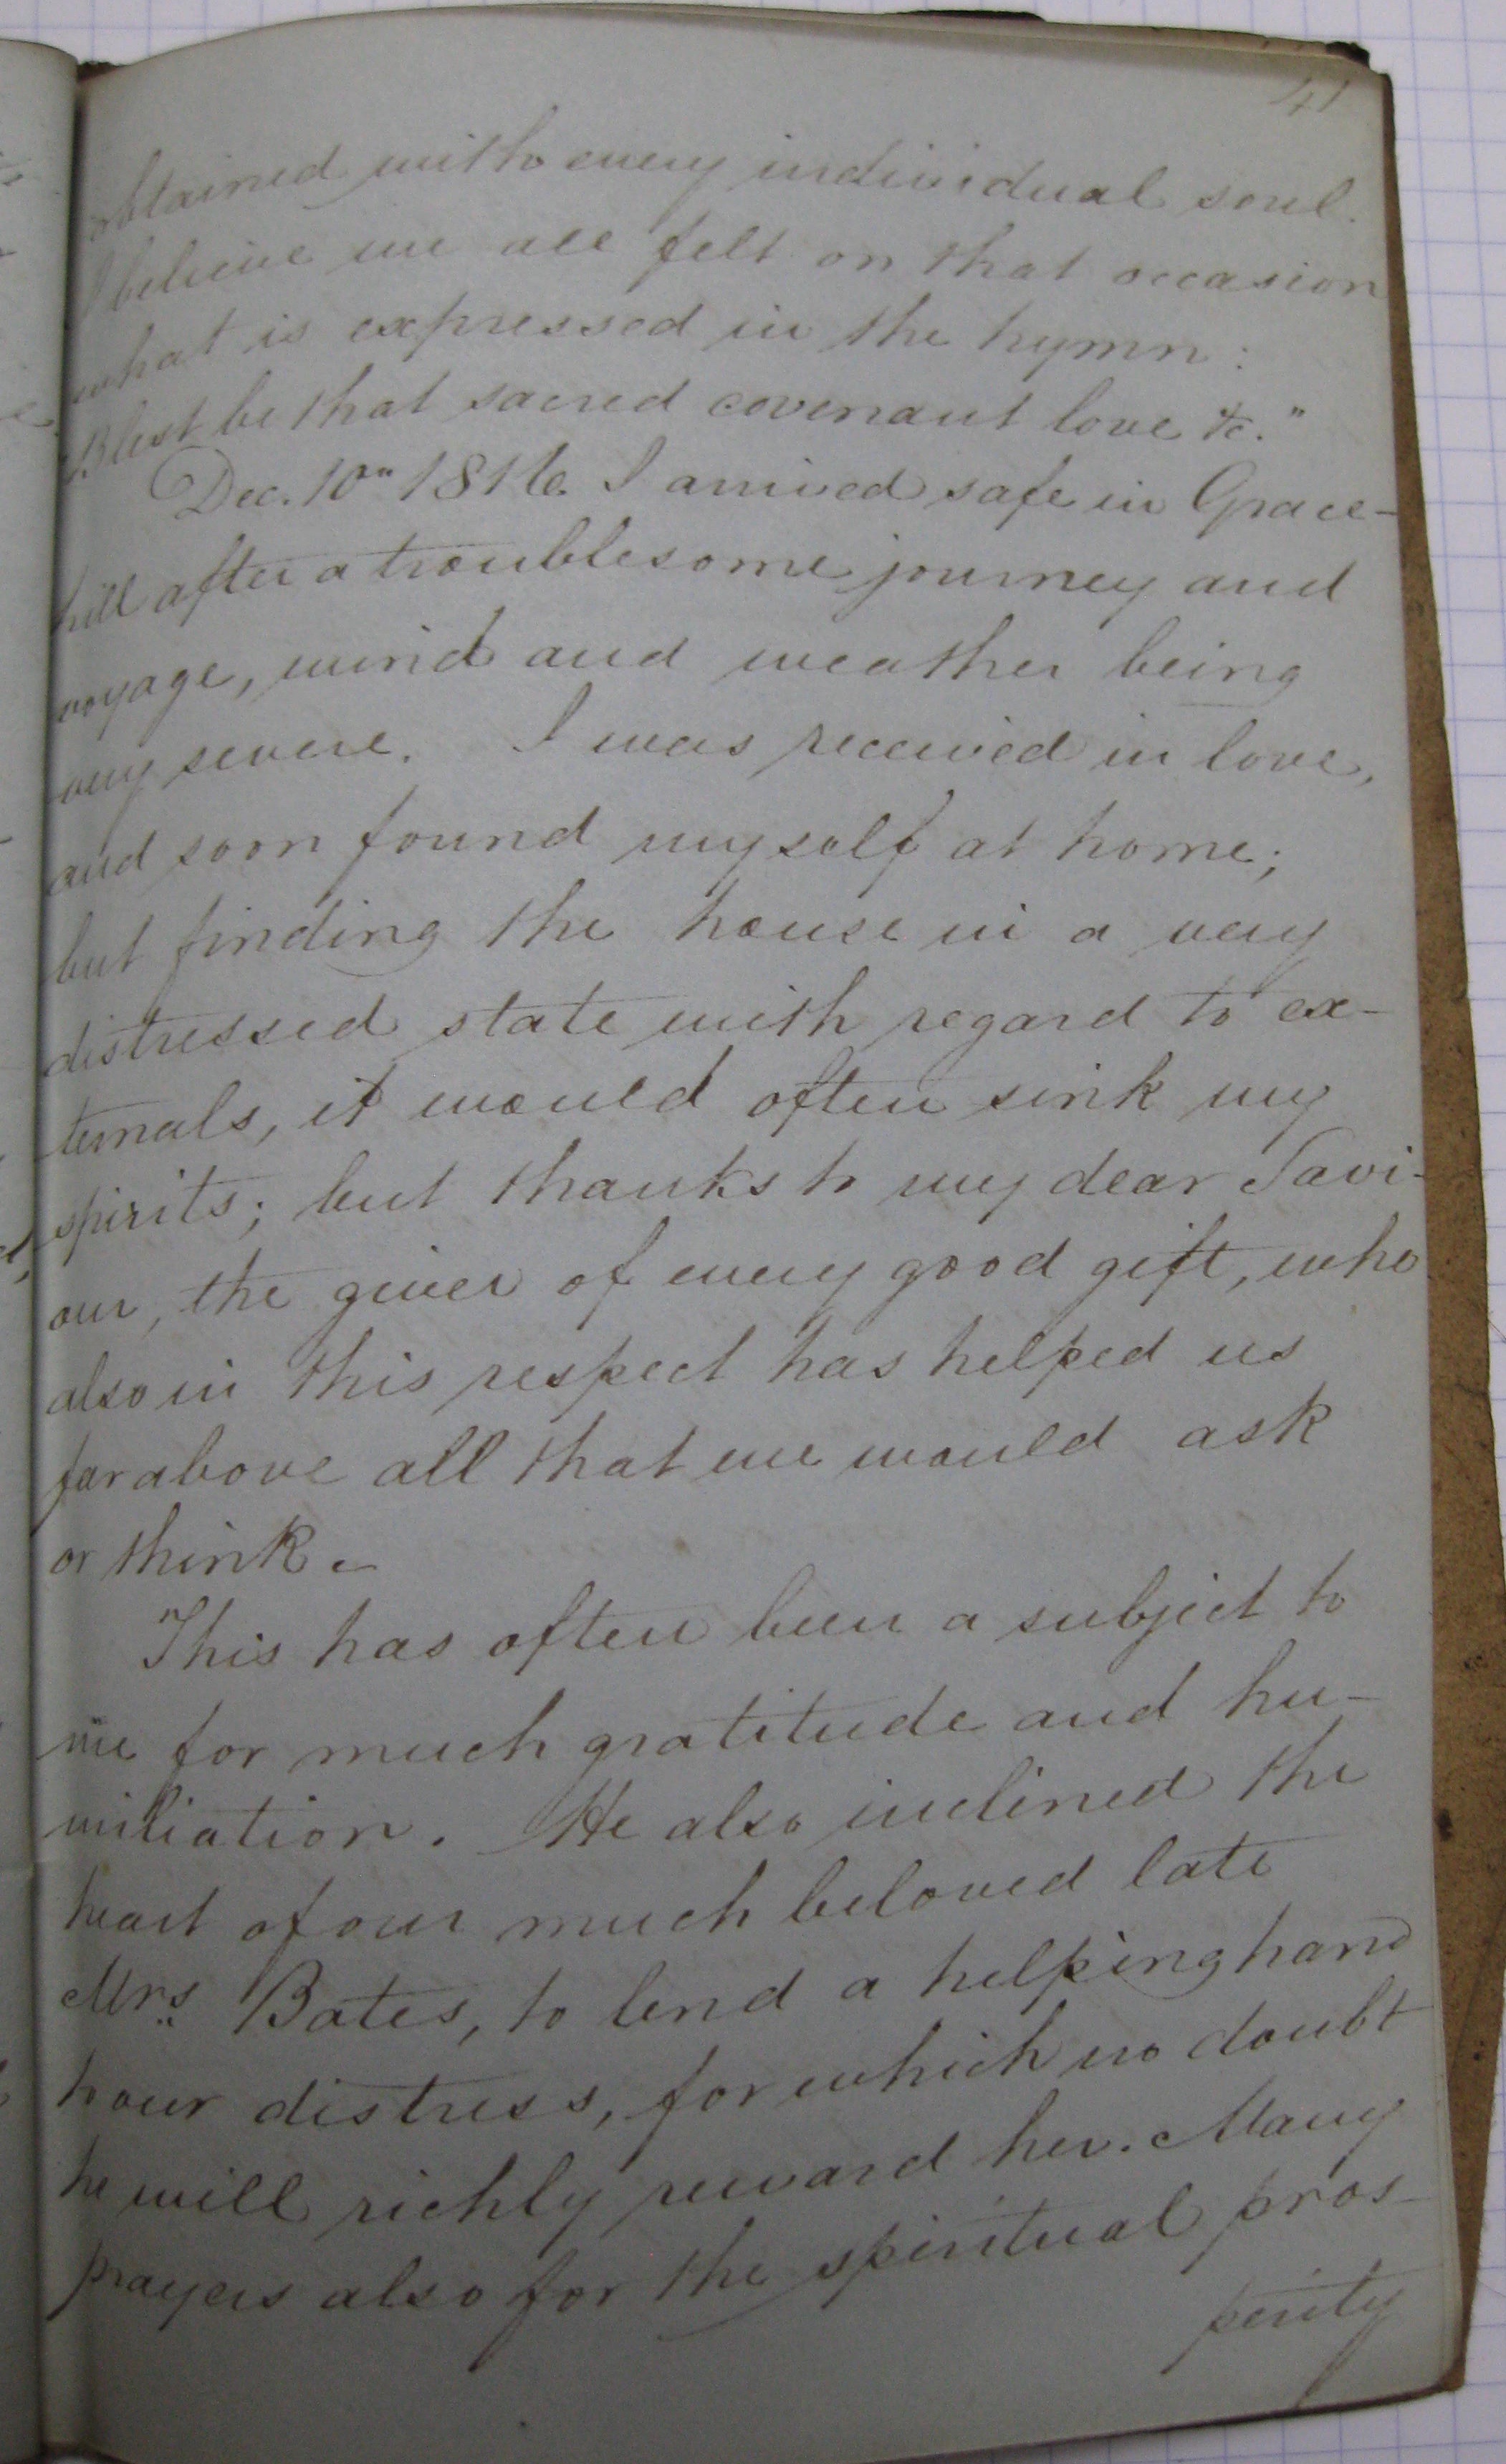 41
obtained with every individual soul.
I believe we all felt on that occasion
what is expressed in the hymn:
"Blest be that sacred covenant love &c."
Dec. 10th 1816. I arrived safe in Grace-
hill after a troublesome journey and
voyage, wind and weather being
very severe. I was received in love,
and soon found myself at home;
but finding the house in a very
distressed state with regard to ex-
ternals, it would often sink my
spirits; but thanks to my dear Savi-
our, the giver of every good gift, who
also in this respect has helped us
far above all that we would ask
or think.
This has often been a subject to
me for much gratitude and hu-
miliation. He also inclined the
heart of our much beloved late
Mrs. Bates, to lend a helping hand
to our distress, for which no doubt
he will richly reward her. Many
prayers also for the spiritual pros-
perity